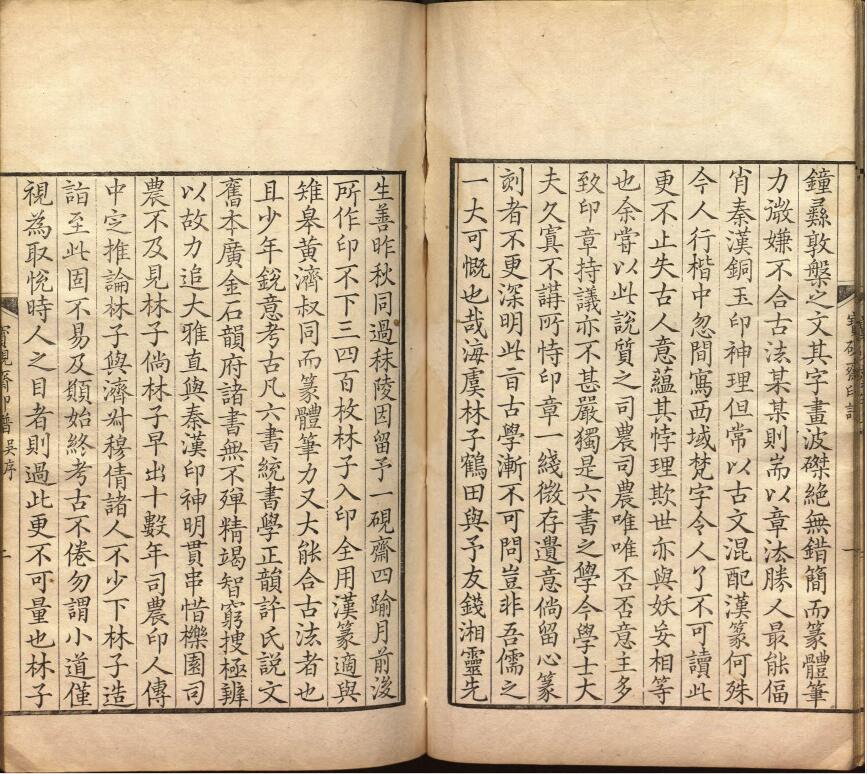 鐘彞敦槃之文其字畫波磔絕無錯簡而篆體筆
力㣲嫌不合古法某某則耑以章法勝人最能偪
肖秦漢銅玉印神理但常以古文混配漢篆何殊
今人行楷中忽間寫西域梵字令人了不可讀此
更不止失古人意蘊其悖理欺世亦與妖妄相等
也余嘗以此說質之司農司農唯唯否否意主多
致印章持議亦不甚嚴獨是六書之學今學士大
夫久寘不講所恃印章一綫微存遺意倘留心篆
刻者不更深明此旨古學漸不可問豈非吾儒之
一大可慨也哉海虞林子鶴田與予友錢湘靈先
生善昨秋同過秣陵因留予一硯齋四踰月前後
所作印不下三四百枚林子入印全用漢篆適與
雉皋黃濟叔同而篆體筆力又大能合古法者也
且少年銳意考古凡六書統書學正韻許氏說文
舊本廣金石韻府諸書無不殫精竭智窮搜極辨
以故力追大雅直與秦漢印神明貫串惜櫟園司
農不及見林子倘林子早出十數年司農印人傳
中定推論林子與濟叔穆倩諸人不少下林子造
詣至此固不易及類始終考古不倦勿謂小道僅
視為取悅時人之目者則過此更不可量也林子
寶硯齋印譜吳序
二